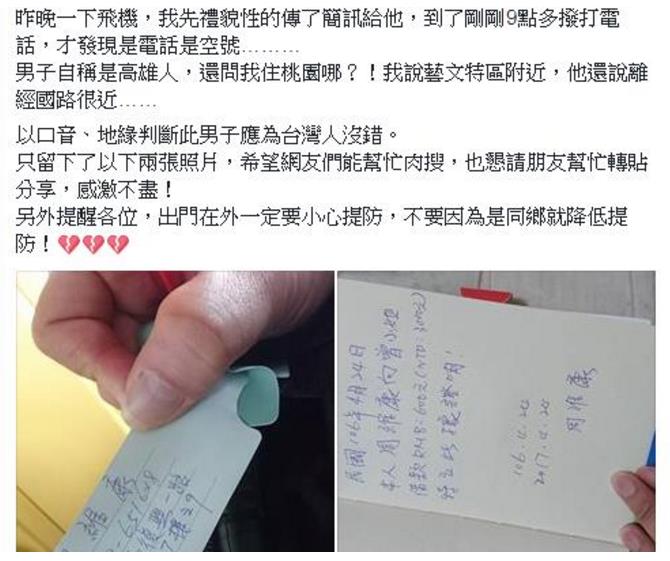 昨晚一下飛機，我先禮貌性的傳了簡訊給他，到了剛剛9點多撥打電
話，才發現是電話是空號………
男子自稱是高雄人，還問我住桃園哪？！我說藝文特區附近，他還說離
經國路很近……
以口音、地緣判斷此男子應為台灣人沒錯。
只留下了以下兩張照片，希望網友們能幫忙肉搜，也懇請朋友幫忙轉貼
分享，感激不盡！
另外提醒各位，出門在外一定要小心提防，不要因為是同鄉就降低提
防！💔💔💔
民國106年4月24日
本人周維康向曾小姐
借款RMB:600元(NTD:3000元)
特立此據證明！
周維康
106.4.24
2017.4.24
維康